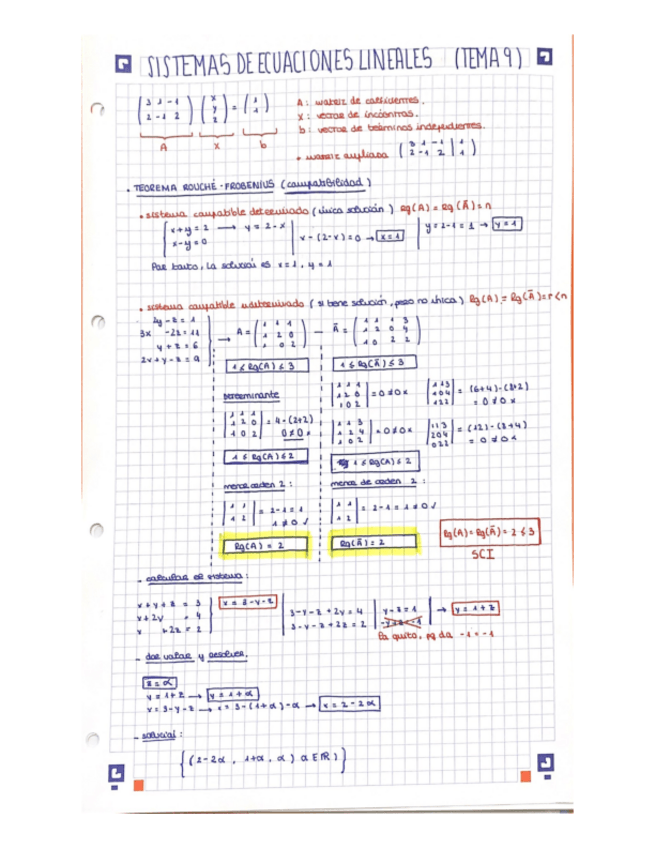 SISTEMAS DE ECUACIONES LINEALES (TEMA 9)
( 3 1 -1 / 2 -1 2 ) ( x / y / z ) = ( 1 / 1 )
A x b
A: matriz de coeficientes.
x: vector de incógnitas.
b: vector de términos independientes.
• matriz ampliada ( 3 1 -1 | 1 / 2 -1 2 | 1 )
• TEOREMA ROUCHÉ-FROBENIUS (compatibilidad)
• sistema compatible determinado (única solución) Rg(A) = Rg(Ā) = n
x+y=2 → y=2-x
x-y=0
x-(2-x)=0 → x=1
y=2-1=1 → y=1
Por tanto, la solución es x=1, y=1
• sistema compatible indeterminado (si tiene solución, pero no única) Rg(A) = Rg(Ā) = r < n
2y-z=1
3x -2z=11
y+z=6
2x+y-z=9
→ A = ( 1 1 1 / 1 2 0 / 1 0 2 ) — Ā = ( 1 1 1 3 / 1 2 0 4 / 1 0 2 2 )
1 ≤ Rg(A) ≤ 3
1 ≤ Rg(Ā) ≤ 3
Determinante
| 1 1 1 / 1 2 0 / 1 0 2 | = 4-(2+2)
0≠0 x
1 ≤ Rg(A) ≤ 2
menor orden 2:
| 1 1 / 1 2 | = 2-1=1
1≠0 ✓
Rg(A) = 2
| 1 1 1 / 1 2 0 / 1 0 2 | = 0≠0 x
| 1 1 3 / 1 0 4 / 1 2 2 | = (6+4)-(8+2)
= 0≠0 x
= 0≠0 x
= (12)-(8+4)
= 0≠0 x
1 ≤ Rg(A) ≤ 2
menor de orden 2:
| 1 1 / 1 2 | = 2-1=1≠0 ✓
Rg(Ā) = 2
Rg(A) = Rg(Ā) = 2 ≤ 3
SCI
- calcular el sistema:
x+y+z=3
x+2y =4
x +2z=2
x=3-y-z
3-y-z+2y=4
3-y-z+2z=2
y-z=1
-y+z=-1
→ y=1+z
La quito, pq da -1=-1
- dar valor y resolver.
z=α
y=1+z → y=1+α
x=3-y-z → x=3-(1+α)-α → x=2-2α
- solución:
{(2-2α, 1+α, α) α∈ℝ)}